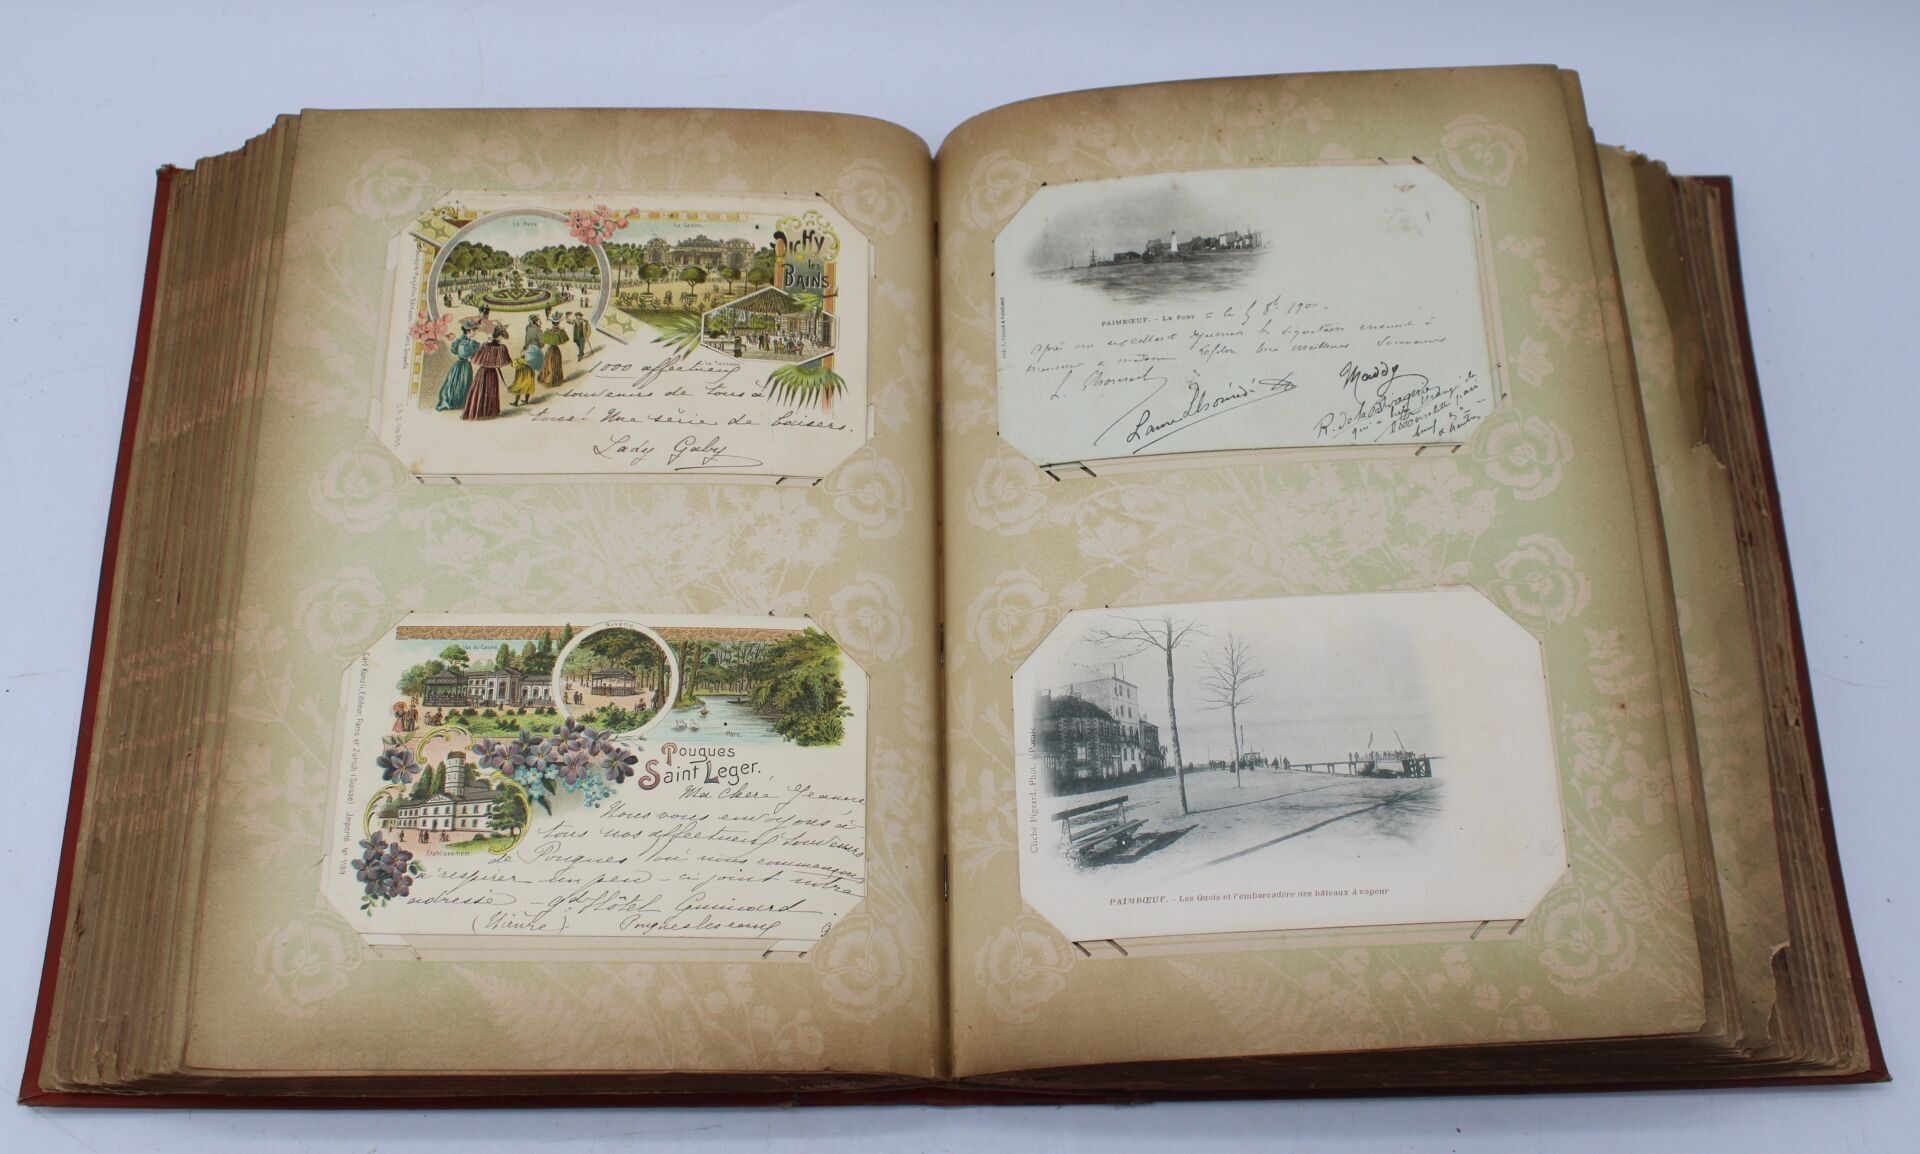 Le Parc
Le Casino.
VICHY
les
BAINS
La Terrasse
1000 affectueux
souvenirs de tous à
tous! Une série de baisers.
Lady Gaby
Vue du Casino
Buvette
Parc.
Pougues
Saint Leger.
Etablissement
Carl Künzli, Editeur, Paris et Zurich (Suisse) Nr. 1189
Ma chère Jeanne
Nous vous envoyons à
tous nos affectueux souvenirs
de Pougues où nous commençons
à respirer un peu - ci joint notre
adresse - gd Hôtel Guimard
(Nièvre) Pougues les eaux
PAIMBŒUF. - LE PORT = le 5 8bre 1900 -
Après un excellent déjeuner les signataires envoient à
monsieur et madame leurs meilleurs souvenirs
Maddy
R. de la
qui a
Cliché Pigeard, Phot.
PAIMBŒUF. - Les Quais et l'embarcadère des bâteaux à vapeur